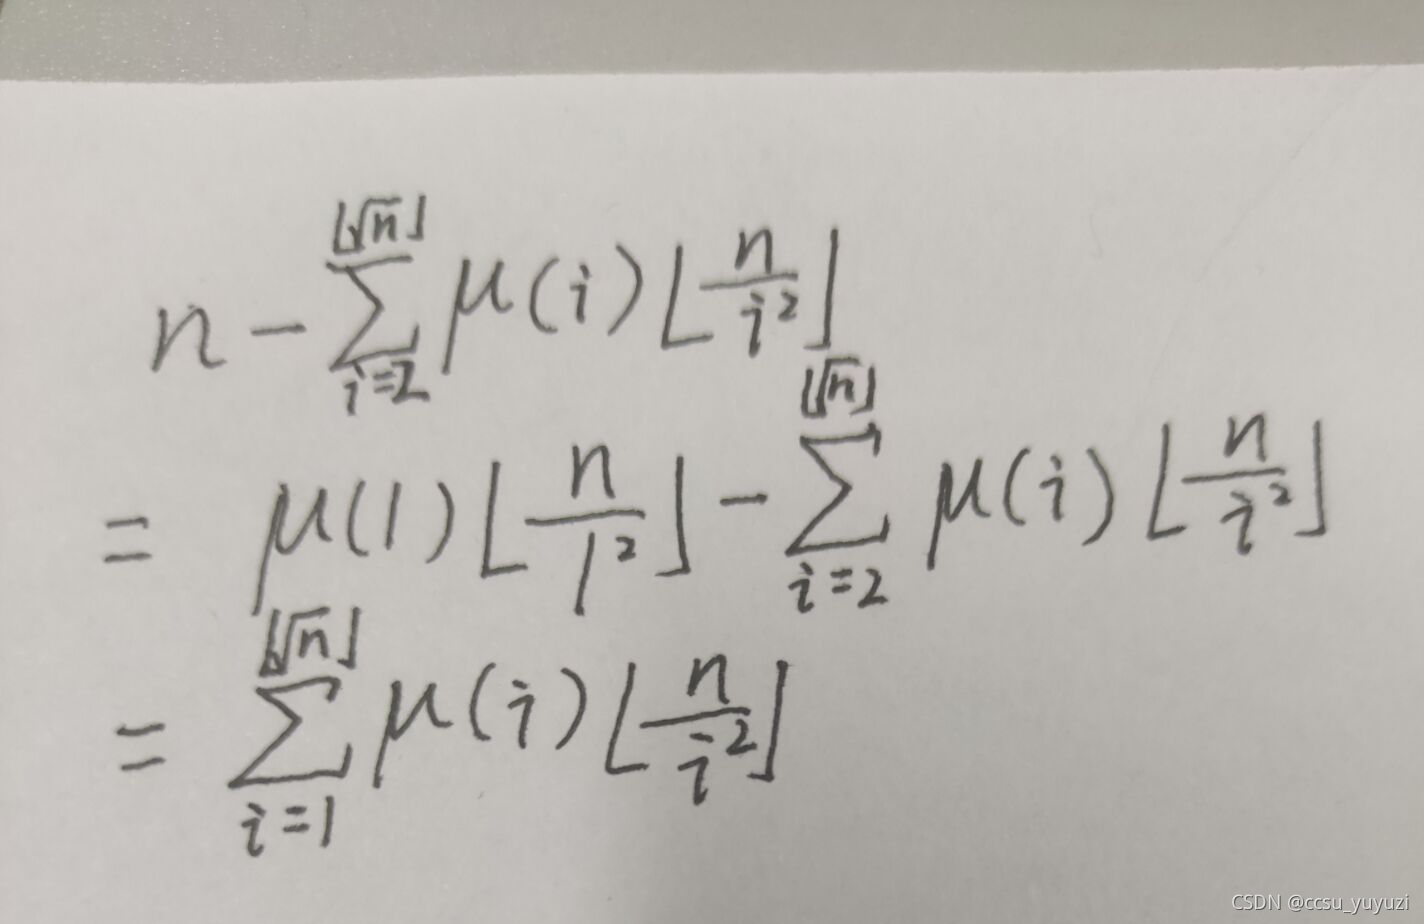 $n - \sum_{i=2}^{\lfloor\sqrt{n}\rfloor} \mu(i) \lfloor \frac{n}{i^2} \rfloor$
$= \mu(1) \lfloor \frac{n}{1^2} \rfloor - \sum_{i=2}^{\lfloor\sqrt{n}\rfloor} \mu(i) \lfloor \frac{n}{i^2} \rfloor$
$= \sum_{i=1}^{\lfloor\sqrt{n}\rfloor} \mu(i) \lfloor \frac{n}{i^2} \rfloor$
CSDN @ccsu_yuyuzi